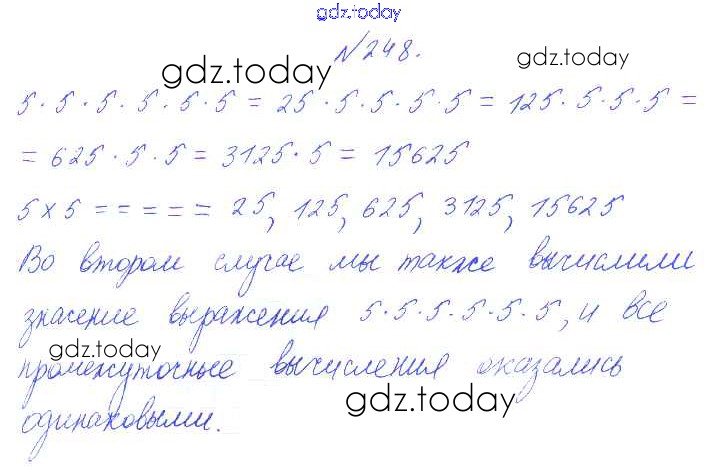 gdz.today
№248.
gdz.today
gdz.today
5·5·5·5·5·5 = 25·5·5·5·5 = 125·5·5·5 =
= 625·5·5 = 3125·5 = 15625
5×5 = = = = = 25, 125, 625, 3125, 15625
Во втором случае мы также вычислили
значение выражения 5·5·5·5·5·5, и все
gdz.today
промежуточные вычисления оказались
gdz.today
одинаковыми.